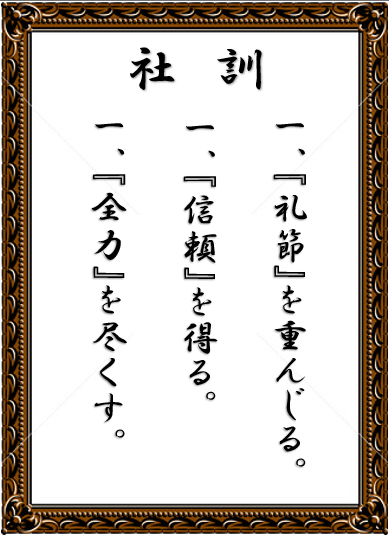 社 訓
一、『礼節』を重んじる。
一、『信頼』を得る。
一、『全力』を尽くす。